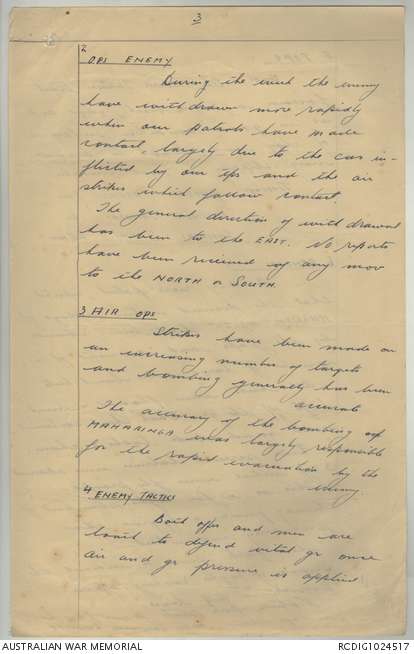 3
2
OPS ENEMY
During the week the enemy
have withdrawn more rapidly
when our patrols have made
contact, largely due to the cas in-
flicted by our tps and the air
strikes which follow contact.
The general direction of withdrawal
has been to the EAST. No reports
have been received of any mov
to the NORTH or SOUTH.
3 AIR OPS
Strikes have been made on
an increasing number of targets
and bombing generally has been
accurate
The accuracy of the bombing of
MAHARINGA was largely responsible
for the rapid evacuation by the
enemy
4 ENEMY TACTICS
Both offrs and men are
to defend vital gr once
air and gr pressure is applied
AUSTRALIAN WAR MEMORIAL
RCDIG1024517